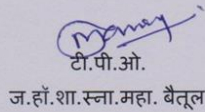 टी.पी.ओ.
ज.हॉ.शा.स्ना.महा. बैतूल